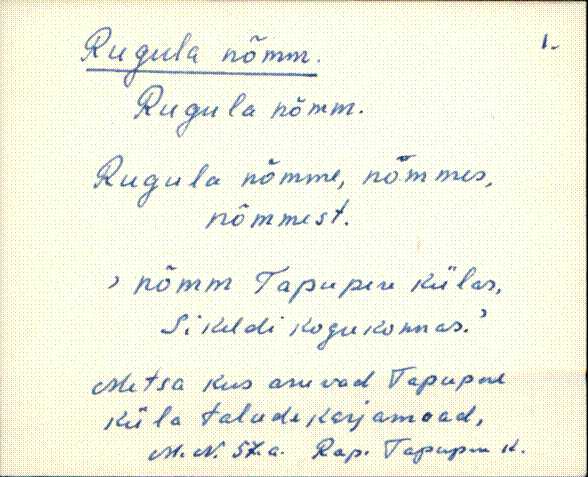 Rugula nõmm.
1.
Rugula nõmm.
Rugula nõmme, nõmmes,
nõmmest.
› nõmm Tapupere külas,
Sikeldi kogukonnas.›
Metsa kus asuvad Tapupere
küla talude karjamaad,
M. N. 57.a. Rap. Tapupere k.